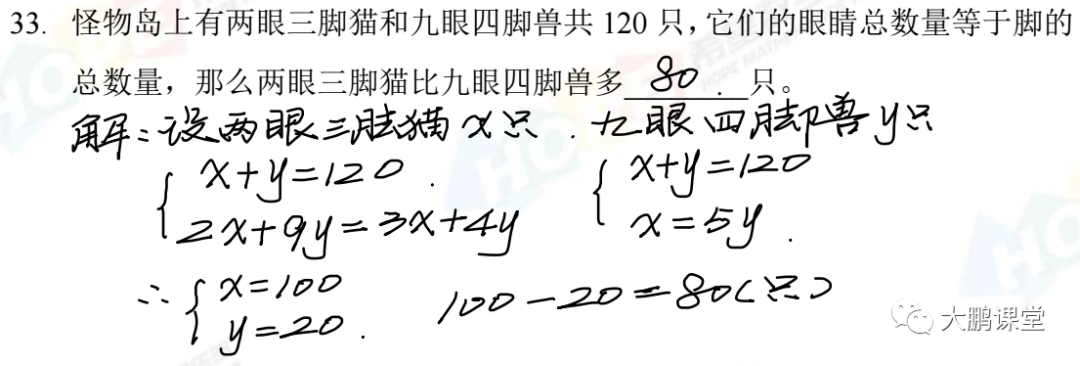 33. 怪物岛上有两眼三脚猫和九眼四脚兽共 120 只，它们的眼睛总数量等于脚的
总数量，那么两眼三脚猫比九眼四脚兽多 80 . 只。
解：设两眼三脚猫 x 只 . 九眼四脚兽 y 只
{ x+y=120 . { x+y=120
2x+9y=3x+4y x=5y .
∴ { x=100 100-20=80(只)
y=20 .
大鹏课堂